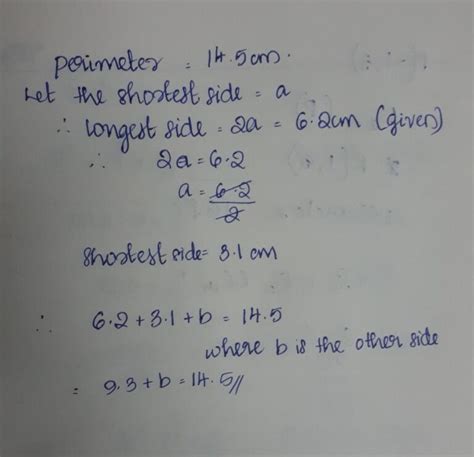 perimeter = 14.5cm.
Let the shortest side = a
∴ longest side = 2a = 6.2cm (given)
∴ 2a = 6.2
a = 6.2/2
shortest side = 3.1 cm
∴ 6.2 + 3.1 + b = 14.5
where b is the other side
= 9.3 + b = 14.5//